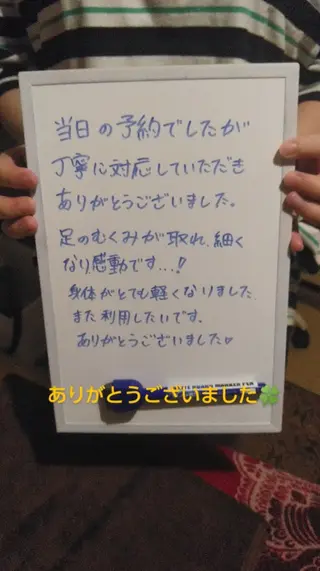 当日の予約でしたが
丁寧に対応していただき
ありがとうございました。
足のむくみが取れ、細く
なり感動です...!!
身体がとても軽くなりました
また利用したいです。
ありがとうございました♡
ありがとうございました🍀